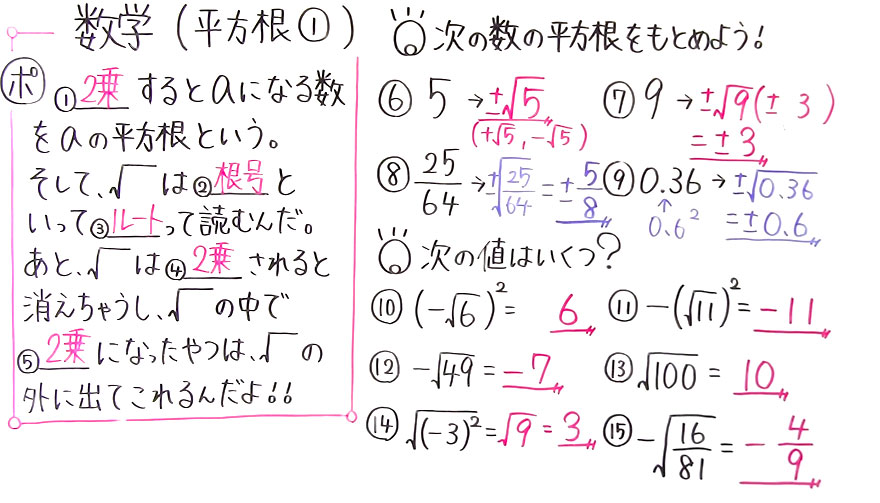 数学(平方根①)
ポ ①2乗するとaになる数
をaの平方根という。
そして、√ は②根号と
いって③ルートって読むんだ。
あと、√ は④2乗されると
消えちゃうし、√ の中で
⑤2乗になったやつは、√ の
外に出てこれるんだよ!!
次の数の平方根をもとめよう!
⑥ 5 → ±√5
(+√5, -√5)
⑦ 9 → ±√9(± 3 )
= ±3
⑧ 25/64 → ±√25/64 = ±5/8
⑨ 0.36 → ±√0.36
↑
0.6²
= ±0.6
次の値はいくつ?
⑩ (-√6)² = 6
⑪ -(√11)² = -11
⑫ -√49 = -7
⑬ √100 = 10
⑭ √(-3)² = √9 = 3
⑮ -√16/81 = -4/9